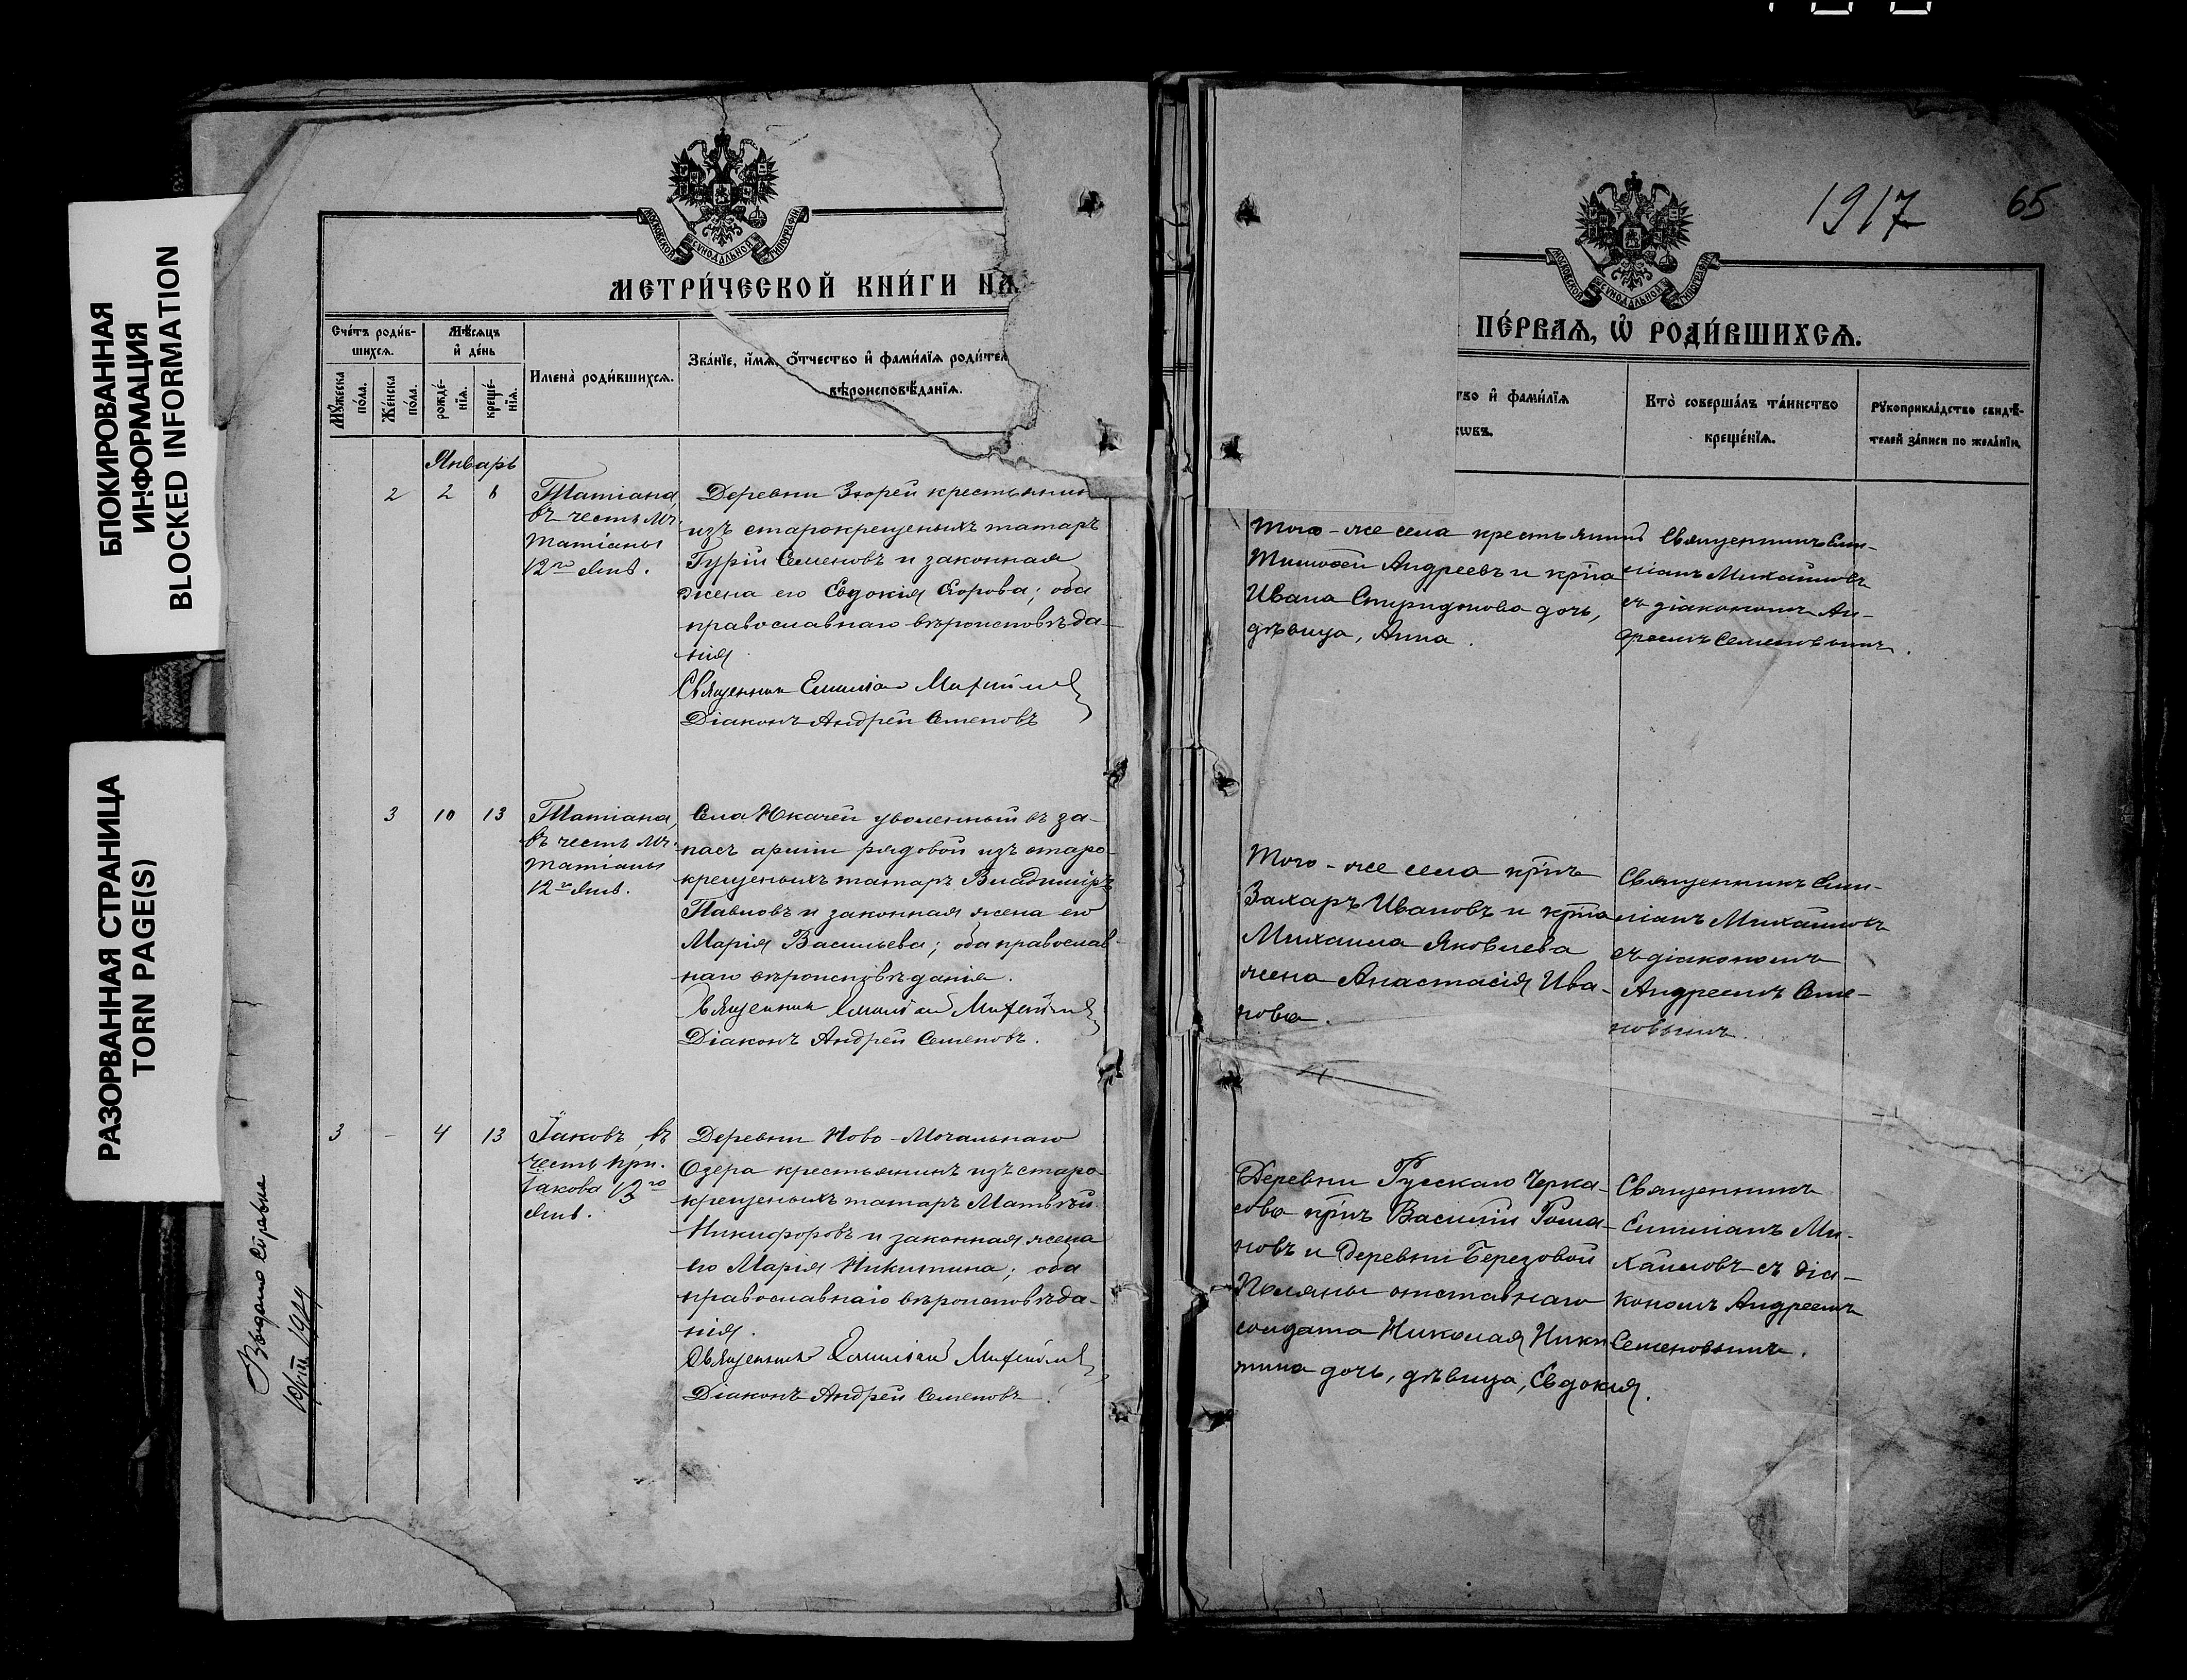 БЛОКИРОВАННАЯ
ИНФОРМАЦИЯ
BLOCKED INFORMATION
РАЗОРВАННАЯ СТРАНИЦА
TORN PAGE(S)
МОСКОВСКОЙ СѴНОДАЛЬНОЙ ТИПОГРАФІИ
МЕТРИ́ЧЕСКОЙ КНИ́ГИ НА
Сче́тъ роди́в-
шихсѧ.
Мѣ́сѧцъ
и҆ де́нь
Мꙋ́жеска
по́ла.
Же́нска
по́ла.
рожде́-
нїѧ.
креще́-
нїѧ.
Имена̀ роди́вшихсѧ.
Зва́нїе, и҆́мѧ, ѻ҆́тчество и҆ фами́лїѧ роди́тел
вѣроисповѣ́данїѧ.
Январь
2 2 6
Татіана,
въ честь мч.
Татіаны
12го Янв.
Деревни Зюрей крестьянин
изъ старокрещеныхъ татаръ
Гурій Семеновъ и законная
жена его Евдокія Егорова; оба
православнаго вѣроисповѣда-
нія.
Священник Емиліан Михайлов
Діаконъ Андрей Семеновъ
3 10 13
Татіана,
въ честь мч.
Татіаны
12го Янв.
Села Юкачей уволенный въ за-
пасъ арміи рядовой изъ старо-
крещеныхъ татаръ Владиміръ
Павловъ и законная жена его
Марія Васильева; оба православ-
наго вѣроисповѣданія.
Священник Емиліан Михайлов
Діаконъ Андрей Семеновъ.
3 - 4 13
Іаковъ, въ
честь прп.
Іакова 13го
Янв.
Деревни Ново-Мочальнаго
Озера крестьянинъ изъ старо-
крещеныхъ татаръ Матвѣй
Никифоровъ и законная жена
его Марія Никитина; оба
православнаго вѣроисповѣда-
нія.
Священник Емиліан Михайлов
Діаконъ Андрей Семеновъ.
Выдано
1917
65
МОСКОВСКОЙ СѴНОДАЛЬНОЙ ТИПОГРАФІИ
ПЕ́РВАѦ, Ѡ҆ РОДИ́ВШИХСѦ.
тво и҆ фами́лїѧ
кѡвъ.
Кто̀ соверша́лъ та́инство
креще́нїѧ.
Рꙋкоприкла́дство свидѣ́-
телей за́писи по жела́нїю.
Того-же села крестьянинъ
Тимоѳей Андреевъ и кр̃на
Ивана Спиридонова дочь,
дѣвица, Анна.
Священникъ Еми-
ліанъ Михайловъ
съ діакономъ Ан-
дреемъ Семеновымъ.
Того-же села кр̃нъ
Захаръ Ивановъ и кр̃на
Михаила Яковлева
жена Анастасія Ива-
нова.
Священникъ Еми-
ліанъ Михайловъ
съ діакономъ
Андреемъ Семе-
новымъ.
Деревни Русскаго Черка-
сова кр̃нъ Василій Рома-
новъ и деревни Березовой
Поляны отставнаго
солдата Николая Ники
тина дочь, дѣвица, Евдокія.
Священникъ
Емиліанъ Ми-
хайловъ съ діа-
кономъ Андреемъ
Семеновымъ.